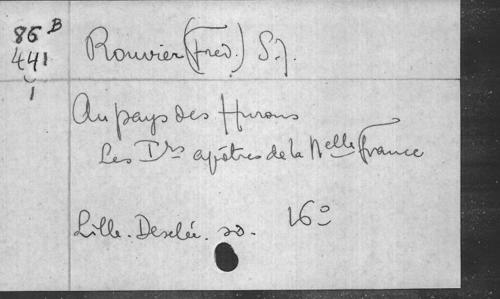 86 B
441
1
Rouvier (Fréd.) S.J.
Au pays des Hurons
Les Iers apôtres de la Nelle France
Lille. Desclée. sd. 16°